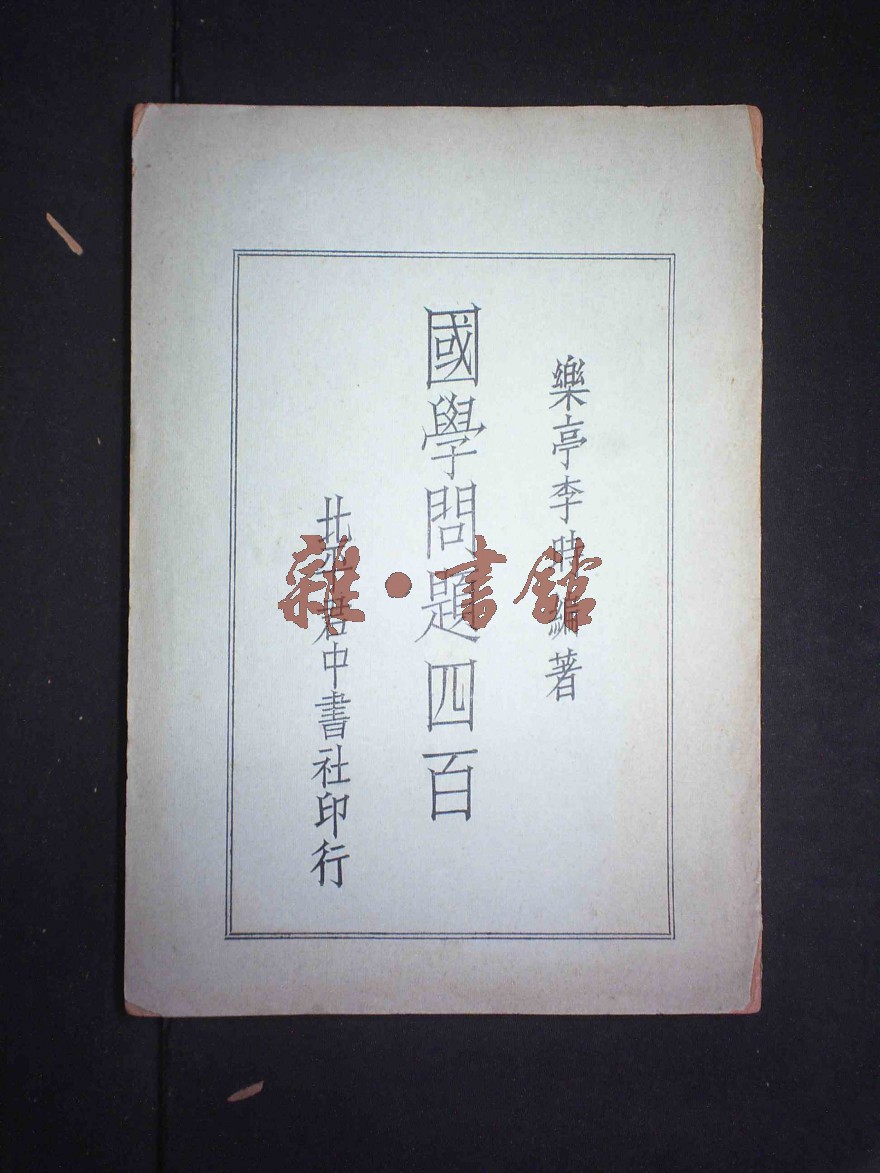 樂亭李時編著
國學問題四百
北平君中書社印行
雜·書館